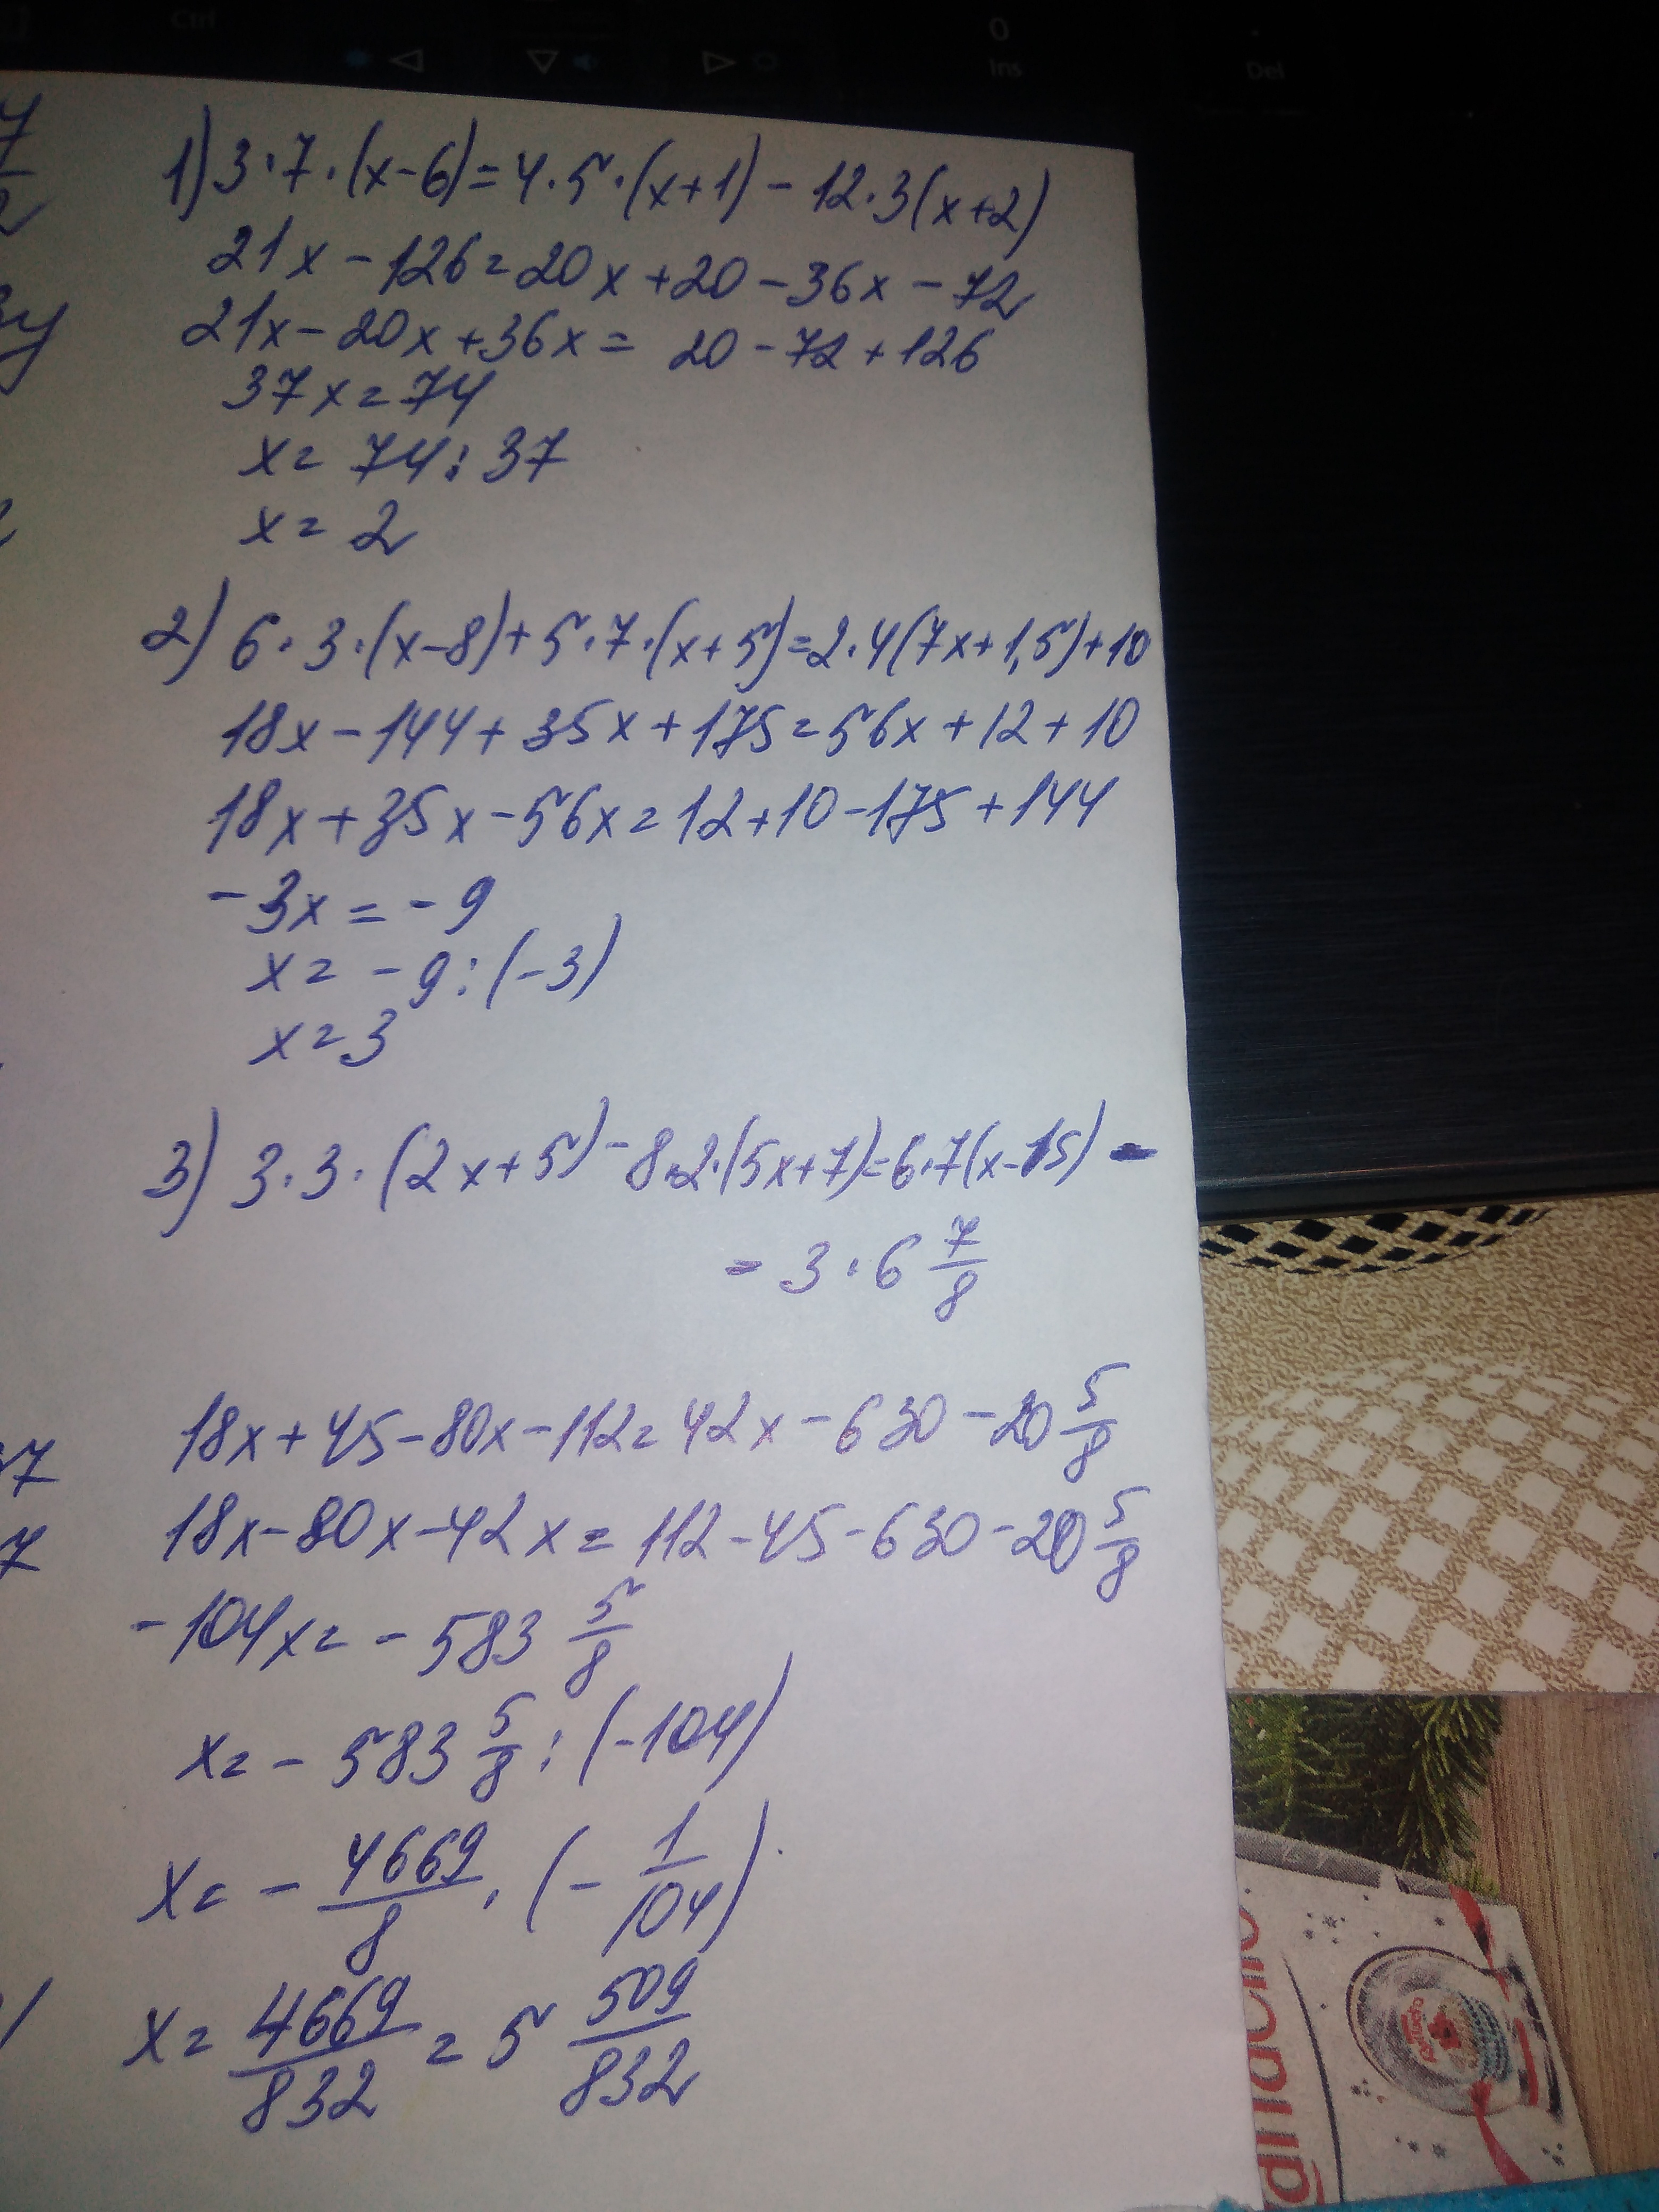 Ctrl
0
Ins
Del
1) 3·7·(x-6)=4·5·(x+1)-12·3(x+2)
21x-126=20x+20-36x-72
21x-20x+36x= 20-72+126
37x=74
x= 74:37
x= 2
2) 6·3·(x-8)+5·7·(x+5)=2·4(7x+1,5)+10
18x-144+35x+175=56x+12+10
18x+35x-56x=12+10-175+144
-3x=-9
x=-9:(-3)
x=3
3) 3·3·(2x+5)-8·2·(5x+7)=6·7(x-15)-
-3·6 7/8
18x+45-80x-112=42x-630-20 5/8
18x-80x-42x=112-45-630-20 5/8
-104x=-583 5/8
x=-583 5/8:(-104)
x=-4669/8·(-1/104)
x=4669/832=5 509/832